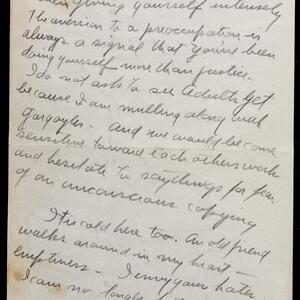 giving yourself intensely
The aversion to a preoccupation is
always a signal that you've been
doing yourself more than justice.
I do not ask to see Adults yet
because I am mulling along with
Gargoyles - and we would become
sensitive toward each others work
and hesitate to say things for fear
of an unconscious copying
It is cold here too. An old friend
walks around in my heart -
emptiness - I envy your hater
I am no longer